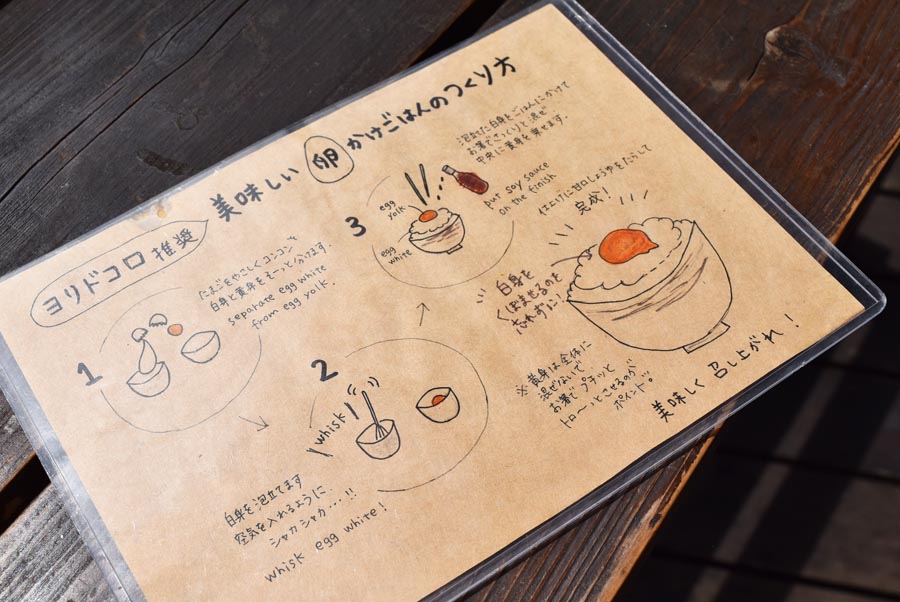 美味しい卵かけごはんのつくり方
ヨリドコロ推奨
1
たまごをやさしくコンコンで
白身と黄身をそーっと分けます。
separate egg white
from egg yolk.
2
whisk
白身を泡立てます
空気を入れるように、
シャカシャカ・・・!!
whisk egg white!
3
泡立てた白身をごはんにかけて
お箸でさっくりと混ぜ
中央に黄身を乗せます。
egg
yolk
egg
white
put soy sauce
on the finish
仕上げに甘口しょうゆをたらして
完成!
白身を
くぼませるのも
忘れずに!
※黄身は全体に
混ぜないで
お箸でプチッと
トロ〜っとさせるのが
ポイント。
美味しく召し上がれ!